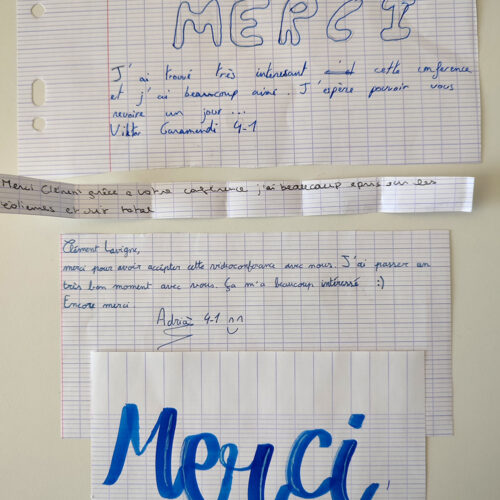 MERCI
J'ai trouvé très intéresant cette conference
et j'ai beaucoup aimé. J'espère pouvoir vous
revoire un jour...
Viktor Garamendi 4-1
Merci Clément grâce a votre conférence j'ai beaucoup apris sur les
éoliennes et sur total
Clément Lavigne,
merci pour avoir accipter cette vidioconférance avec nous. J'ai passer un
très bon moment avec vous. Ça m'a beaucoup intéressé :)
Encore merci
Adrià 4-1
Merci!